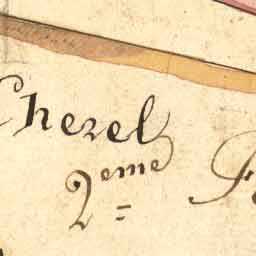 Chezel
2eme